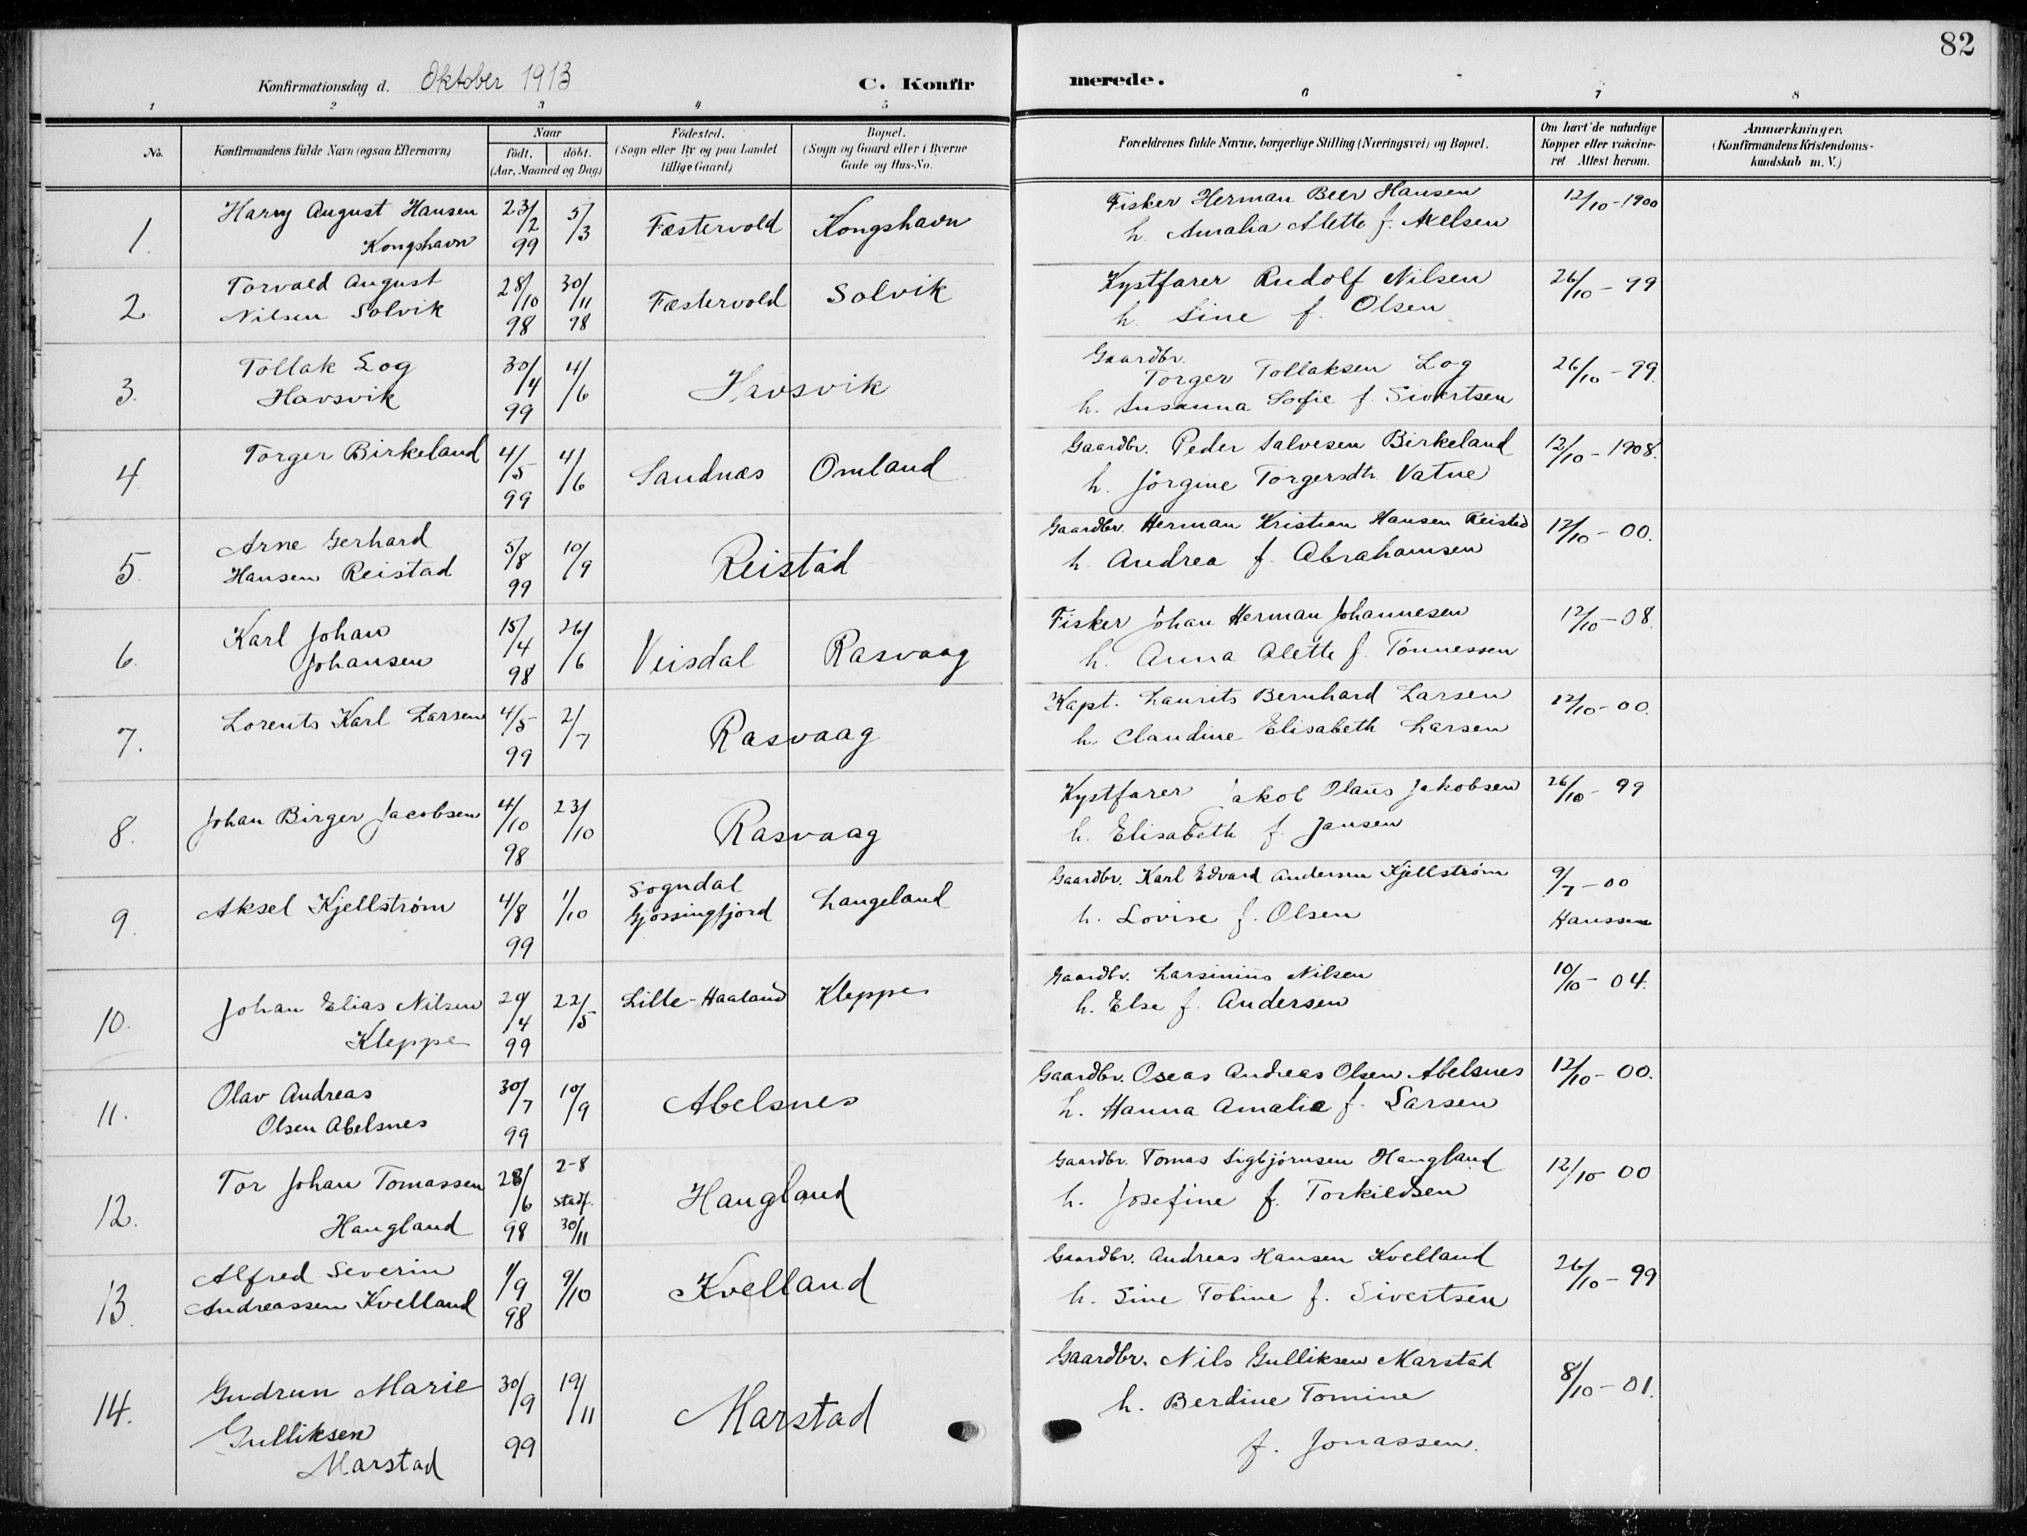 82
Konfirmationsdag d. Oktober 1913 C. Konfirmerede.
1 2 3 4 5 6 7 8
No.
Konfirmandens fulde Navn (ogsaa Efternavn)
Naar
født. døbt.
(Aar, Maaned og Dag)
Fødested.
(Sogn eller By og paa Landet
tillige Gaard)
Bopæl.
(Sogn og Gaard eller i Byerne
Gade og Hus-No.
Forældrenes fulde Navne, borgerlige Stilling (Næringsvei) og Bopæl.
Om havt de naturlige
Kopper eller vakcine-
ret Attest herom.
Anmærkninger.
(Konfirmandens Kristendoms-
kundskab m. V.)
1. Harry August Hansen
Kongshavn
23/2 99 5/3 Fæstervold Kongshavn
Fisker Herman Beer Hansen
h. Amalia Alette f. Axelsen
12/10-1900
2. Torvald August
Nilsen Solvik
28/10 98 30/11 98 Fæstervold Solvik
Kystfarer Rudolf Nilsen
h. Sine f. Olsen
26/10-99
3. Tollak Log
Havsvik
30/4 99 4/6 Havsvik
Gaardbr.
Torger Tollaksen Log
h. Susanna Sofie f. Sivertsen
26/10-99.
4. Torger Birkeland
4/5 99 4/6 Sandnæs Omland
Gaardbr. Peder Salvesen Birkeland
h. Jørgine Torgersdtr. Vatne
12/10-1908.
5. Arne Gerhard
Hansen Reistad
5/8 99 10/9 Reistad
Gaardbr. Herman Kristian Hansen Reistad
h. Andrea f. Abrahamsen
12/10-00.
6. Karl Johan
Johansen
15/4 98 26/6 Veisdal Rasvaag
Fisker Johan Herman Johannesen
h. Anna Alette f. Tønnessen
12/10-08.
7. Lorents Karl Larsen
4/5 99 2/7 Rasvaag
Kapt. Laurits Bernhard Larsen
h. Claudine Elisabeth Larsen
12/10-00.
8. Johan Birger Jacobsen
4/10 98 23/10 Rasvaag
Kystfarer Jakob Olaus Jakobsen
h. Elisabeth f. Jansen
26/10-99
9. Aksel Kjellstrøm
4/8 99 1/10 Sogndal
Gjøssingfjord
Langeland
Gaardbr. Karl Edvard Andersen Kjellstrøm
h. Lovise f. Olsen
9/7-00
Hanssen
10. Johan Elias Nilsen
Kleppe
29/4 99 22/5 Lille-Haaland Kleppe
Gaardbr. Larsinius Nilsen
h. Else f. Andersen
10/10-04.
11. Olav Andreas
Olsen Abelsnes
30/7 99 10/9 Abelsnes
Gaardbr. Oseas Andreas Olsen Abelsnes
h. Hanna Amalie f. Larsen
12/10-00.
12. Tor Johan Tomassen
Haugland
28/6 98 2-8
stadf.
30/11
Haugland
Gaardbr. Tomas Sigbjørnsen Haugland
h. Josefine f. Torkildsen
12/10-00
13. Alfred Severin
Andreassen Kvelland
1/9 98 9/10 Kvelland
Gaardbr. Andreas Hansen Kvelland
h. Sine Tobine f. Sivertsen
26/10-99
14. Gudrun Marie
Gulliksen
Marstad
30/9 99 19/11 Marstad
Gaardbr. Nils Gulliksen Marstad
h. Berdine Tomine
f. Jonassen.
8/10-01.